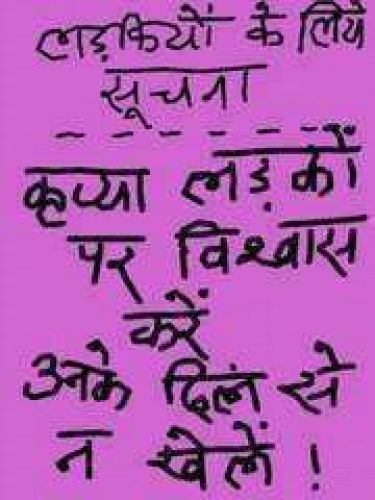 लड़कियों के लिये
सूचना
कृप्या लड़कों
पर विश्वास
करें
उनके दिल से
न खेलें !